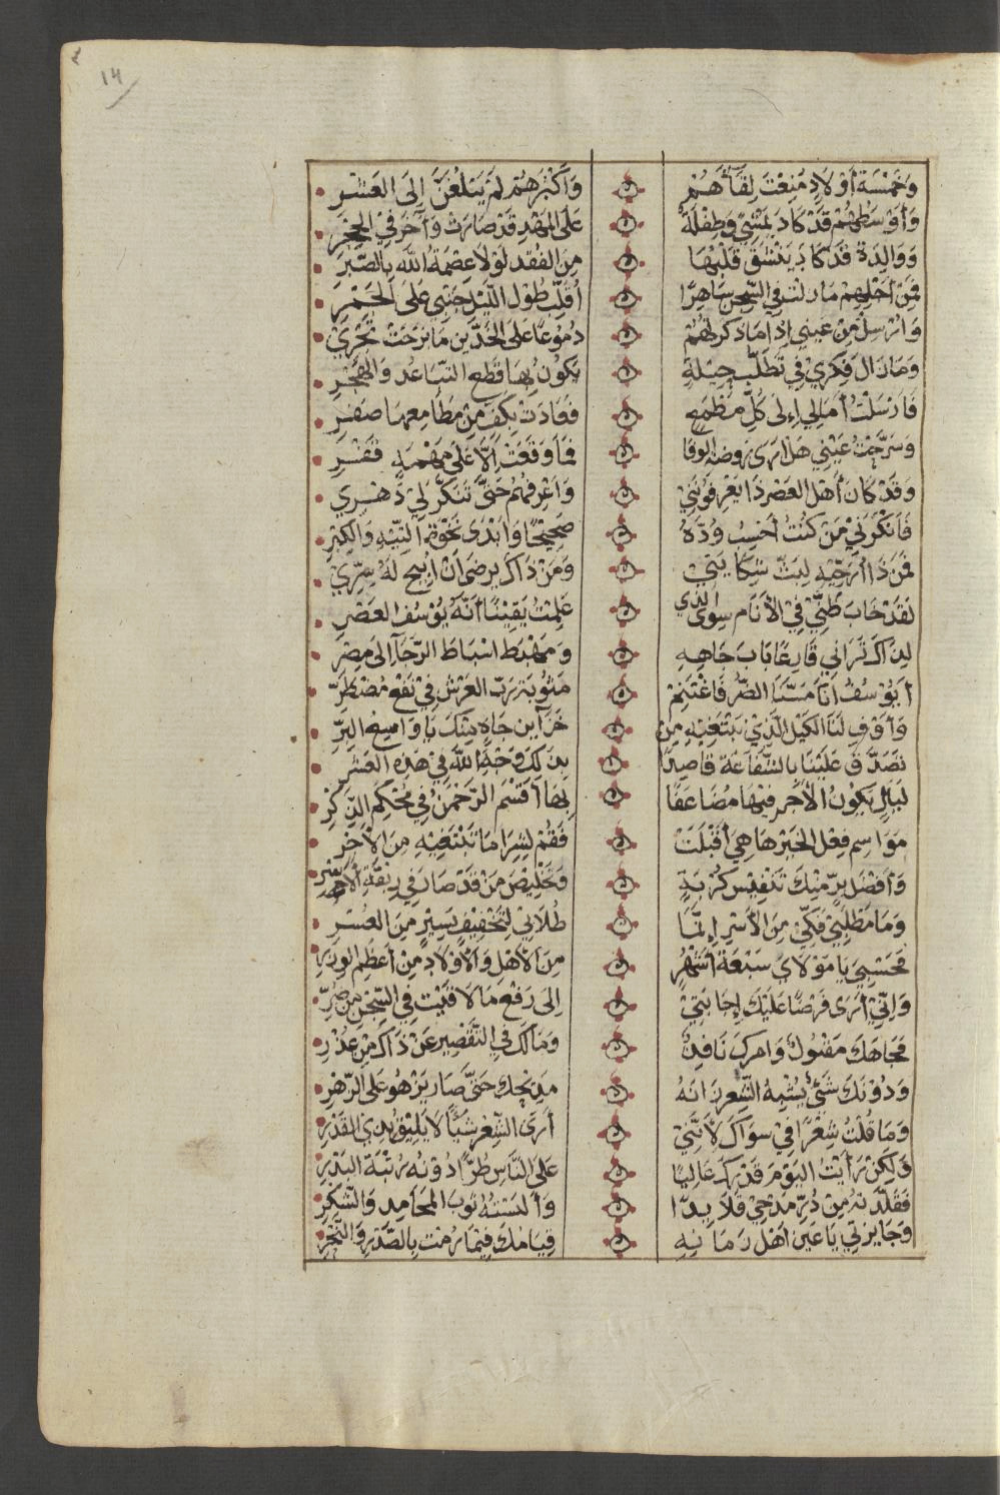 ١٣
وَخَمْسَةُ أَوْلَادٍ مُنِعْتَ لِقَآءَهُمْ وَأَكْبَرُهُمْ لَمْ يَبْلُغَنَّ إِلَى العَشْرِ
وَأَوْسَطُهُمْ قَدْ كَادَ يَمْشِي وَطِفْلَةٌ عَلَى المَهْدِ قَدْ صَارَتْ وَآخَرُ فِي الحِجْرِ
وَوَالِدَةٌ قَدْ كَادَ يَنْشَقُّ قَلْبُهَا مِنَ الفَقْدِ لَوْلَا عِصْمَةُ اللّٰهِ بِالصَّبْرِ
فَمِنْ أَجْلِهِمْ مَا زِلْتُ فِي السِّجْنِ سَاهِرًا أُقَلِّبُ طُولَ اللَّيْلِ جَنْبِي عَلَى الجَمْرِ
وَأُرْسِلُ مِنْ عَيْنِي إِذَا مَا ذَكَرْتُهُمْ دُمُوعًا عَلَى الخَدَّيْنِ مَا بَرِحَتْ تَجْرِي
وَمَا زَالَ فِكْرِي فِي تَطَلُّبِ حِيلَةٍ يَكُونُ بِهَا قَطْعُ التَّبَاعُدِ وَالهَجْرِ
فَأَرْسَلْتُ آمَالِي إِلَى كُلِّ مَطْمَعٍ فَعَادَتْ بِكَفٍّ مِنْ مَطَامِعِهَا صِفْرِ
وَسَرَّحْتُ عَيْنِي هَلْ أَرَى رَوْضَ الوَفَا فَمَا وَقَعَتْ إِلَّا عَلَى مَهْمَهٍ قَفْرِ
وَقَدْ كَانَ أَهْلُ العَصْرِ ذَا يَعْرِفُونَنِي وَأَعْرِفُهُمْ حَتَّى تَنَكَّرَ لِي دَهْرِي
فَأَنْكَرَنِي مَنْ كُنْتُ أَحْسِبُ وُدَّهُ صَحِيحًا وَأَبْدَى نَخْوَةَ التِّيهِ وَالكِبْرِ
فَمَنْ ذَا أُرَجِّيهِ لِبَثِّ شِكَايَتِي وَمَنْ ذَاكَ يَرْضَى أَنْ أُبِيحَ لَهُ سِرِّي
لَقَدْ خَابَ ظَنِّي فِي الأَنَامِ سِوَى الَّذِي عَلِمْتُ يَقِينًا أَنَّهُ يُوسُفُ العَصْرِ
لِذَاكَ تَرَانِي قَارِعًا بَابَ جَاهِهِ وَمَهْبِطَ انْبِسَاطِ الرَّجَا إِلَى مِصْرِ
أَيُوسُفُ إِنَّا مَسَّنَا الضُّرُّ فَاغْتَنِمْ مَثُوبَةَ رَبِّ العَرْشِ فِي نَفْعِ مُضْطَرِّ
وَأَوْفِ لَنَا الكَيْلَ الَّذِي نَبْتَغِيهِ مِنْ خَزَآيِنِ جَاهٍ مِنْكَ يَا وَاسِعَ البِرِّ
تَصَدَّقْ عَلَيْنَا بِالشَّفَاعَةِ قَاصِدًا بِذَلِكَ وَجْهَ اللّٰهِ فِي هَذِهِ العَشْرِ
لَيَالٍ يَكُونُ الأَجْرُ فِيهَا مُضَاعَفًا بِهَا أَقْسَمَ الرَّحْمٰنُ فِي مُحْكَمِ الذِّكْرِ
مَوَاسِمُ فِعْلِ الخَيْرِ هَا هِيَ أَقْبَلَتْ فَقُمْ لِشِرَا مَا تَبْتَغِيهِ مِنَ الأَجْرِ
وَأَفْضَلُ بِرٍّ مِنْكَ تَنْفِيسُ كُرْبَةٍ وَتَخْلِيصُ مَنْ قَدْ صَارَ فِي رِبْقَةِ الأَسْرِ
وَمَا مَطْلَبِي فَكِّي مِنَ الأَسْرِ إِنَّمَا طِلَابِي لِتَخْفِيفٍ يَسِيرٍ مِنَ العُسْرِ
فَحَسْبِي يَا مَوْلَايَ سَبْعَةُ أَشْهُرٍ مِنَ الأَهْلِ وَالأَوْلَادِ مِنْ أَعْظَمِ الوِزْرِ
وَإِنِّي أَرَى فَرْضًا عَلَيْكَ إِجَابَتِي إِلَى رَفْعِ مَا لَاقَيْتُ فِي السِّجْنِ مِنْ ضُرِّ
فَجَاهُكَ مَقْبُولٌ وَأَمْرُكَ نَافِذٌ وَمَا لَكَ فِي التَّقْصِيرِ عَنْ ذَاكَ مِنْ عُذْرِ
وَدُونَكَ شَيْءٌ يُشْبِهُ الشِّعْرَ زَانَهُ مَدِيحُكَ حَتَّى صَارَ يَزْهُو عَلَى الزَّهْرِ
وَمَا قُلْتُ شِعْرًا فِي سِوَاكَ لِأَنَّنِي أَرَى الشِّعْرَ شَيْئًا لَا يَلِيقُ بِذِي القَدْرِ
وَلَكِنْ رَأَيْتُ اليَوْمَ قَدْرَكَ عَالِيًا عَلَى النَّاسِ طُرًّا دُونَهُ رُتْبَةُ البَدْرِ
فَقَلَّدْتُهُ مِنْ دُرِّ مَدْحِي قَلَايِدًا وَأَلْبَسْتُهُ ثَوْبَ المَحَامِدِ وَالشُّكْرِ
وَجَايِزَتِي يَا عَيْنَ أَهْلِ زَمَانِهِ قِيَامُكَ فِيمَا رُمْتُ بِالصَّدْرِ وَالنَّحْرِ